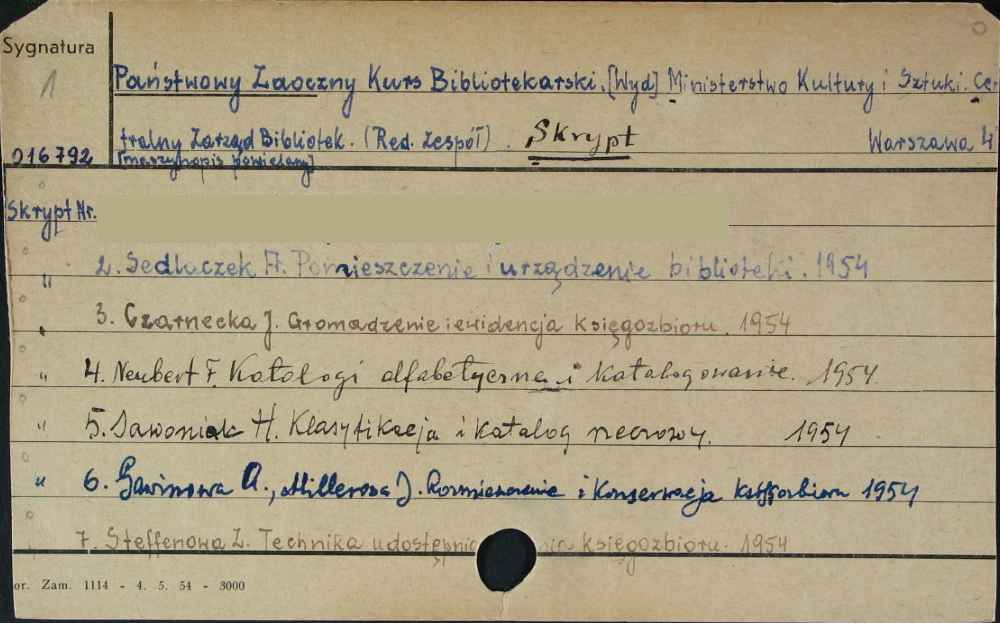 Sygnatura
1
Państwowy Zaoczny Kurs Bibliotekarski. [Wyd] Ministerstwo Kultury i Sztuki. Cen
tralny Zarząd Bibliotek. (Red. Zespół). Skrypt Warszawa 4
016792 [maszynopis powielany]
Skrypt Nr.
" 2. Sedlaczek A. Pomieszczenie i urządzenie biblioteki. 1954
" 3. Czarnecka J. Gromadzenie i ewidencja księgozbioru. 1954
" 4. Neubert F. Katalogi alfabetyczne i katalogowanie. 1954.
" 5. Sawoniak H. Klasyfikacja i katalog rzeczowy. 1954
" 6. A., Millerowa J. Rozmieszczenie i konserwacja 1954
7. Steffenowa Z. Technika księgozbioru. 1954
or. Zam. 1114 - 4. 5. 54 - 3000